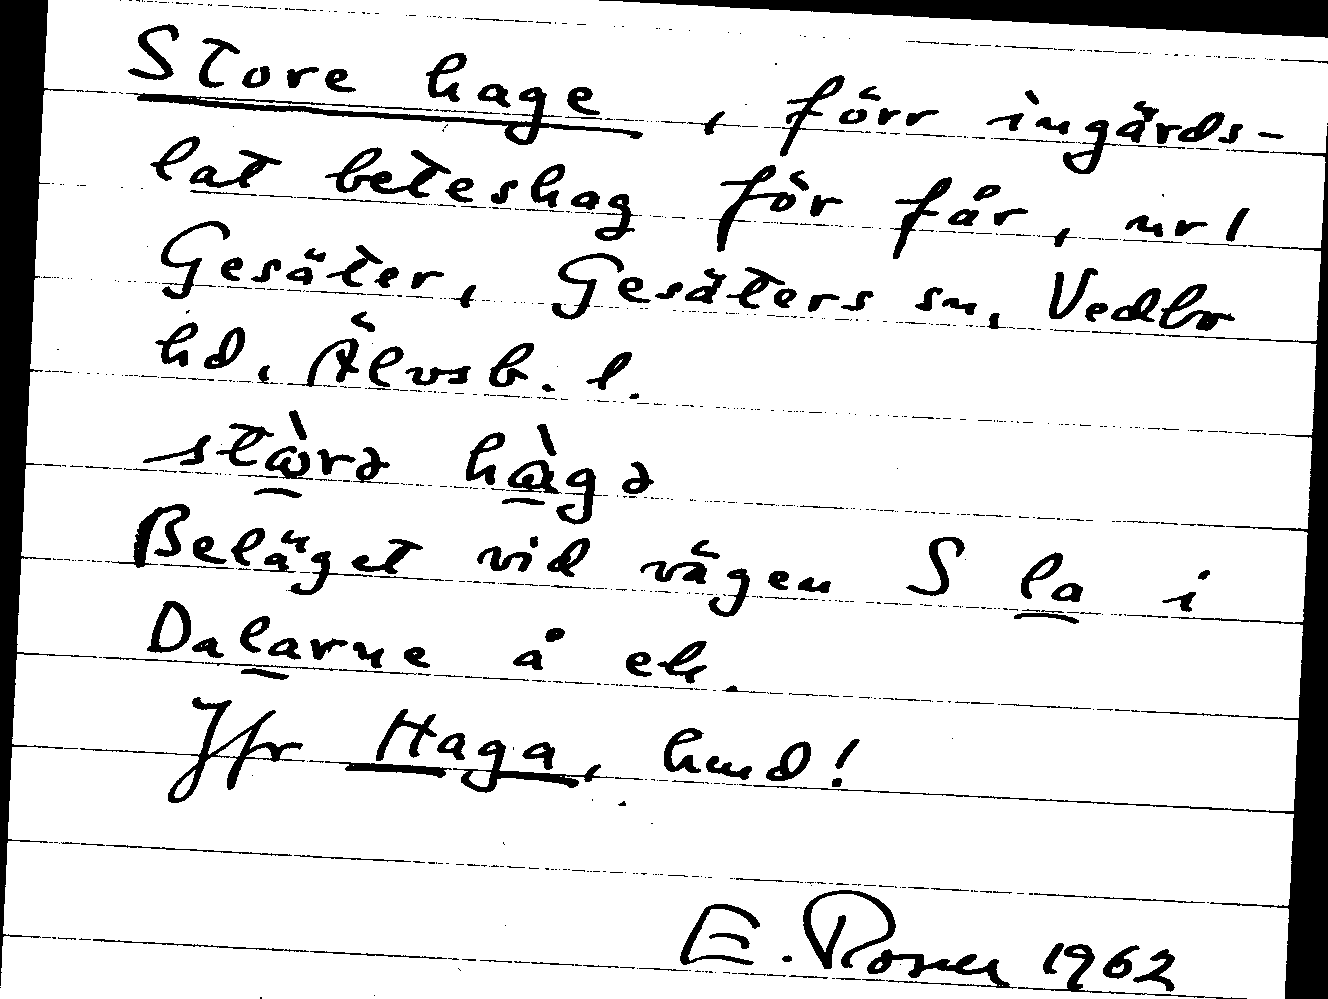 Store hage, förr ingärds-
lat beteshag för får, nr 1
Gesäter, Gesäters sn, Vedbo
hd, Älvsb. l.
stɷ̀rə hɑ̀gə
Beläget vid vägen S la i
Dalarne å ek.
Jfr Haga, hmd!
E. Rosen 1962